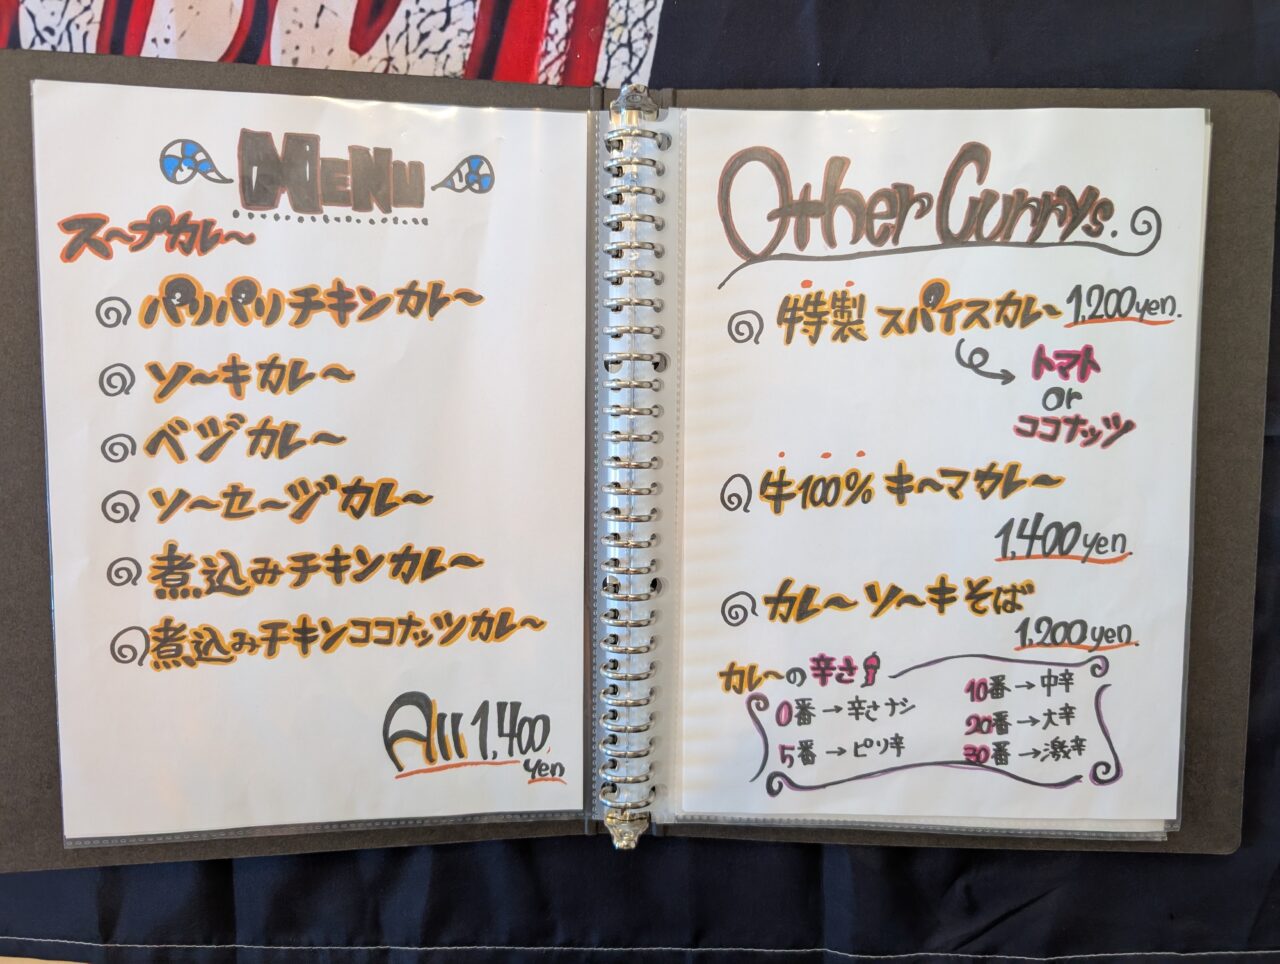 MENU
スープカレー
パリパリチキンカレー
ソーキカレー
ベジカレー
ソーセージカレー
煮込みチキンカレー
煮込みチキンココナッツカレー
All 1,400 yen
Other Currys.
特製 スパイスカレー 1,200yen.
トマト
or
ココナッツ
牛100% キーマカレー
1,400yen.
カレーソーキそば
1,200yen.
カレーの辛さ
0番→辛さナシ
5番→ピリ辛
10番→中辛
20番→大辛
30番→激辛